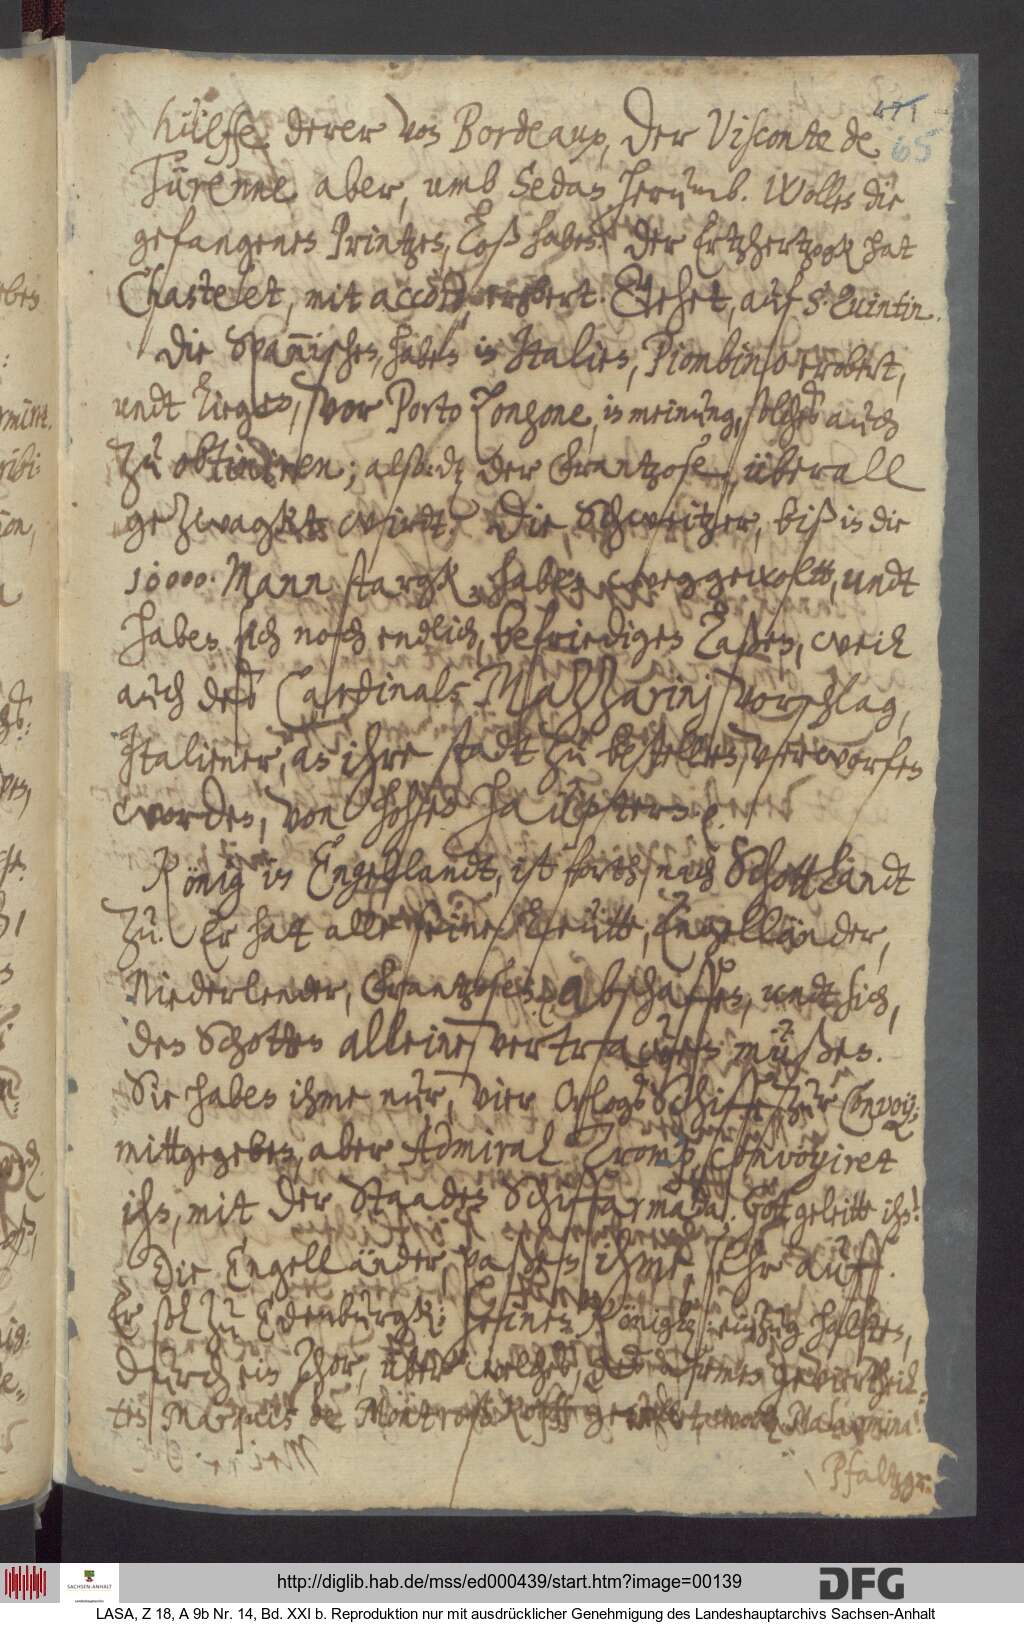 471
65
hülffe, derer von Bordeaux, Der Visconte de
Türenne aber, umb Sedan herumb. Wollen die
gefangenen Printzen, loß haben. Der Ertzhertzogk hat
Chastelet, mit accord, erobert. Gehet, auf S. Quintin.
Die Spannischen, haben in Italien, Piombino erobert,
undt liegen, vor Porto Longone, in meinung, solches auch
zu obtiniren; also daß der Frantzose, überall
gezwagkt wirdt. Die Schweitzer, biß in die
10000 Mann stargk haben weg gewoltt, undt
haben sich noch endlich, befriedigen laßen, weil
auch deß Cardinals Mazzarinj vorschlag,
Italiener, an ihre stadt zu bestellen, verworfen
worden, von hohen Haüptern.
König in Engellandt, ist forth, nach Schottlandt
zu. Er hat alle seine Leütte, Engelländer,
Niederlender, Frantzosen, abschaffen, undt sich,
den Schotten alleine vertrawen müßen.
Sie haben ihme nur, vier Orlogs Schiffe, zur Convoy,
mittgegeben, aber Admiral Tromp, convoyiret
ihn, mit der Staaden Schiff armada. Gott geleitte ihn!
Die Engelländer, paßen ihme, sehr auff.
Er sol zu Edenburgk: seinen Königl: einzug halten,
durch ein Thor, über welches, des armen geviertheil¬
ten Marquis de Montross Kopff gestegkt worden. Mala omina!
Pfaltzgr:
http://diglib.hab.de/mss/ed000439/start.htm?image=00139
SACHSEN-ANHALT
DFG
LASA, Z 18, A 9b Nr. 14, Bd. XXI b. Reproduktion nur mit ausdrücklicher Genehmigung des Landeshauptarchivs Sachsen-Anhalt